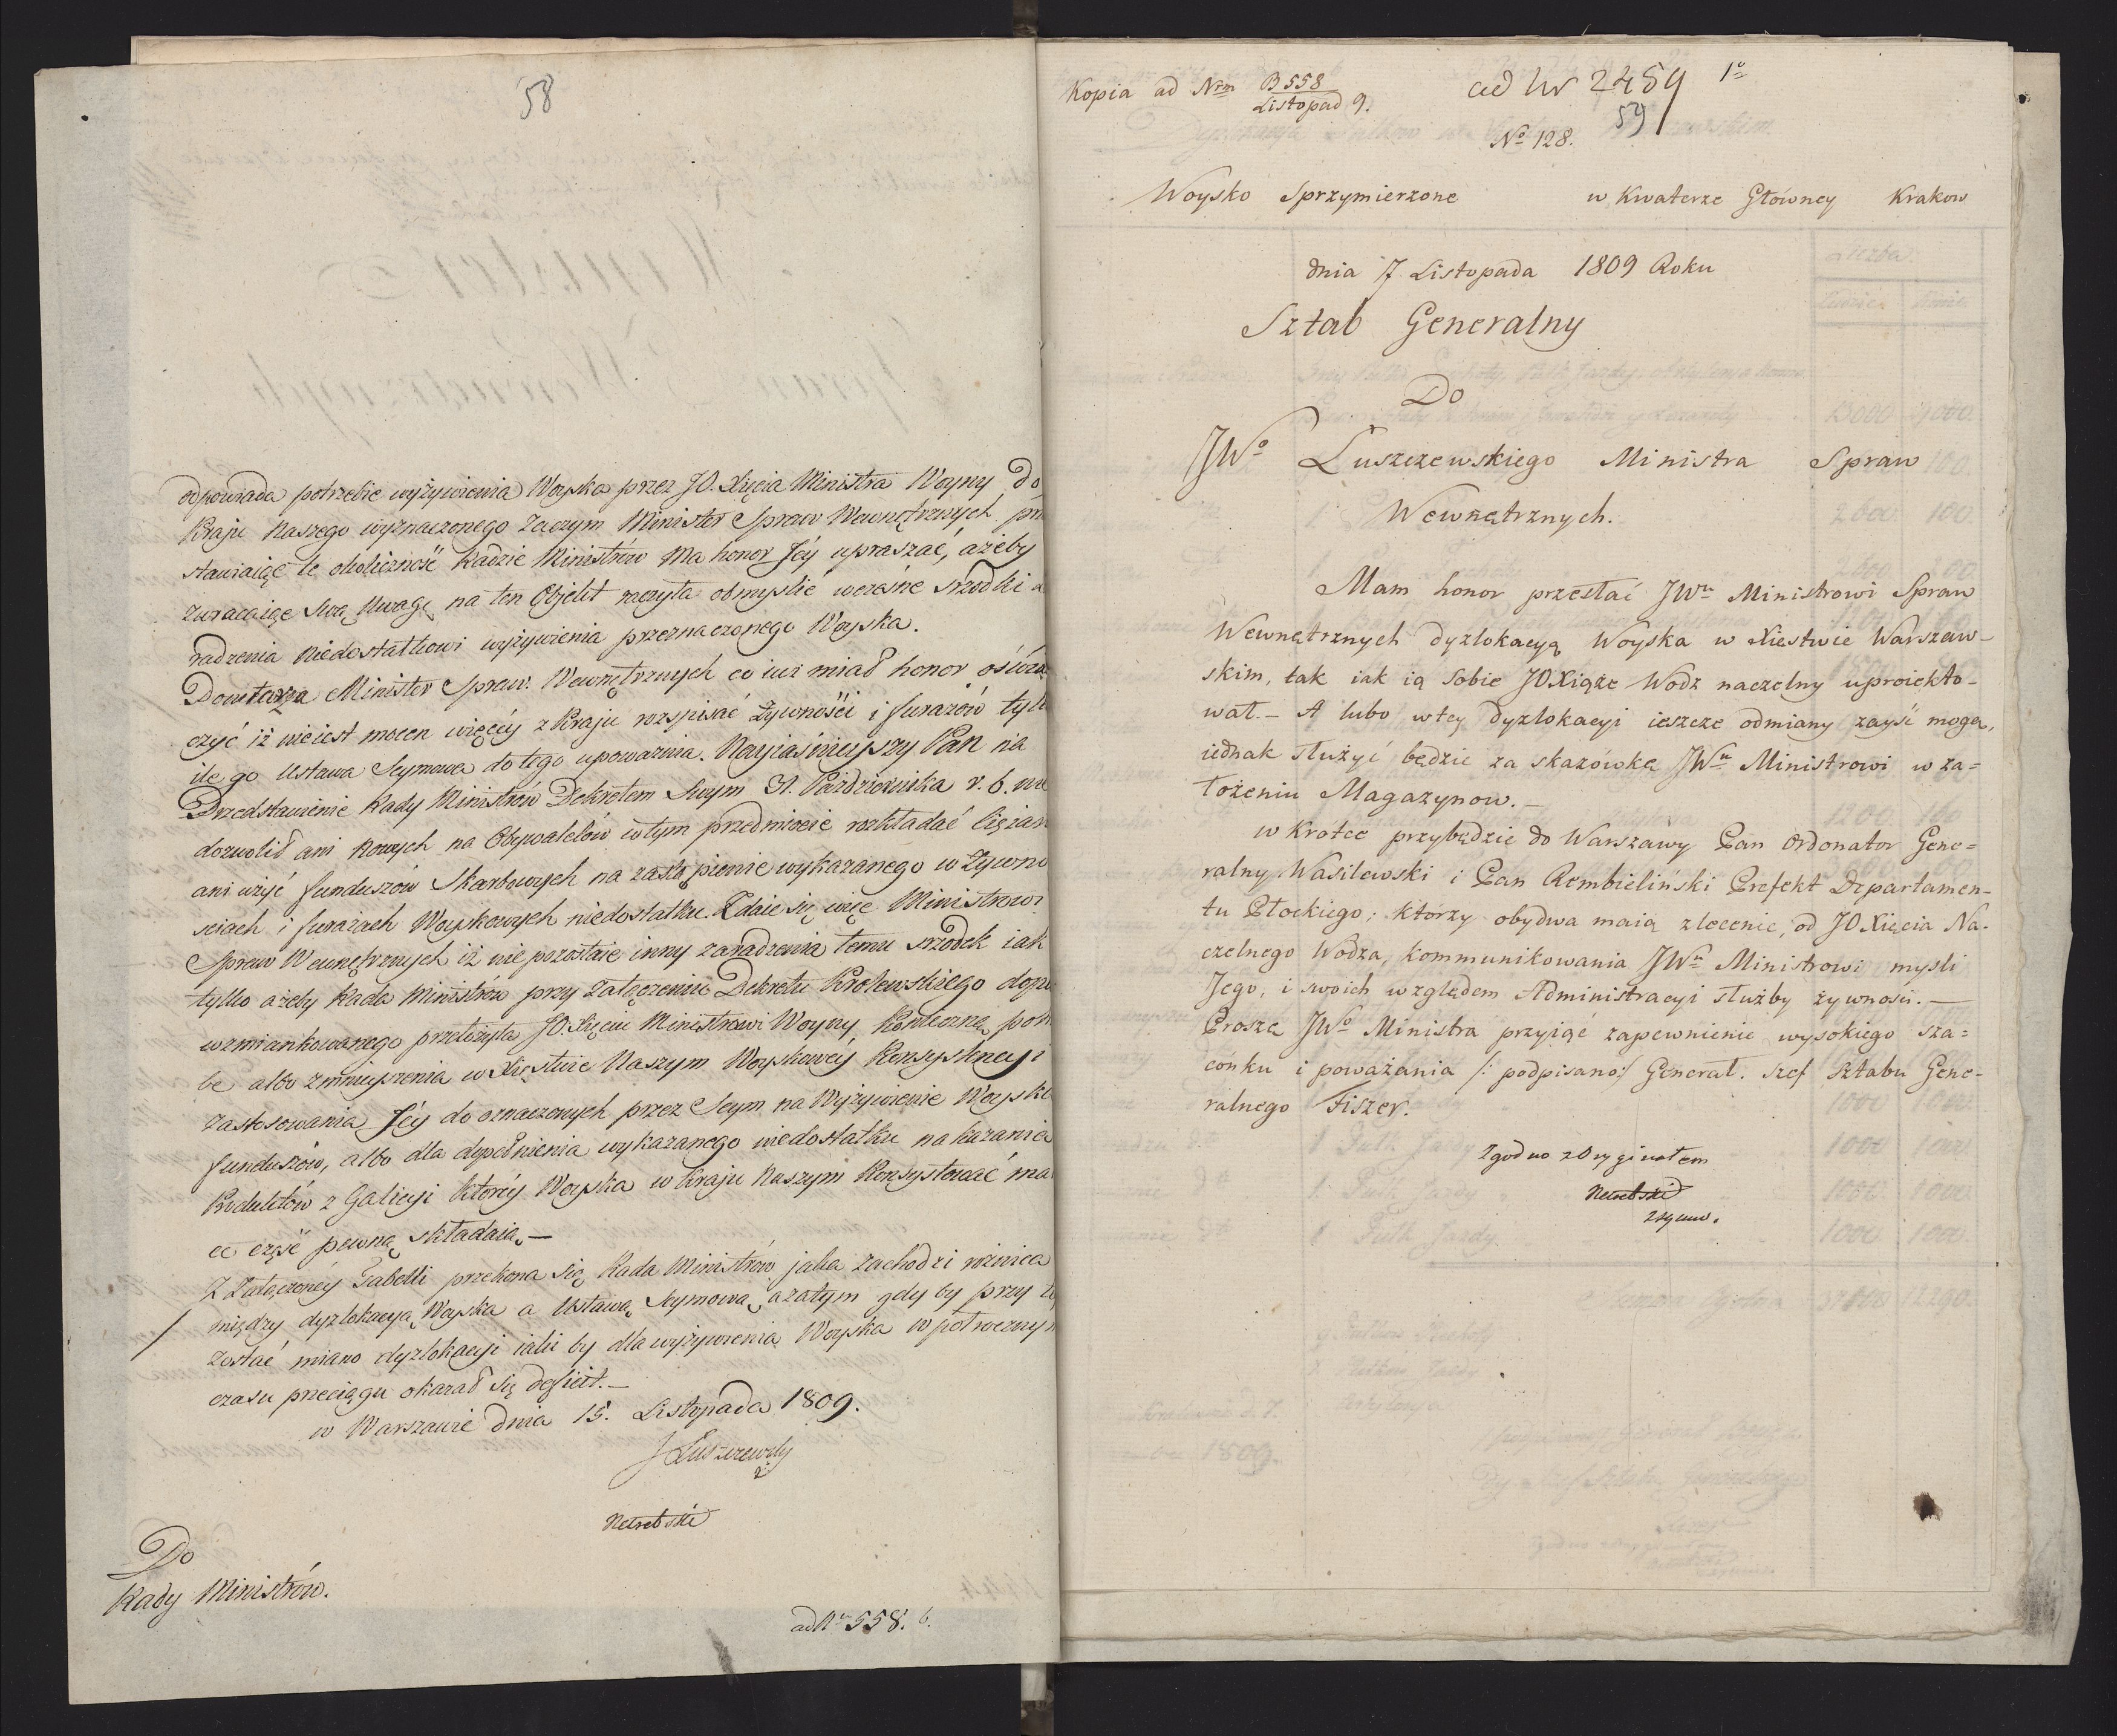 58
odpowiada potrzebie wyżywienia Woyska przez JO. Xięcia Ministra Woyny do
Kraju Naszego wyznaczonego zaczym Minister Spraw Wewnętrznych
stawiaiąc te okoliczność Radzie Ministrów ma honor Jéy upraszać, ażeby
zwracaiąc swą Uwagę na ten Objekt raczyła obmyslić wczesne srzodki
radzenia niedostatkowi wyżywienia przeznaczonego Woyska.
Powtarza Minister Spraw Wewnętrznych co iuż miał honor oświad
czyć iż nie iest mocen więcéy z Kraju rozspisać Żywności i furażów tylk
ile go Ustawa Seymowa do tego upoważnia. Nayiaśnieyszy Pan na
Przedstawienie Rady Ministrów Dekretem Swym 31. Października r. b. nie
dozwolił ani nowych na Obywatelów wtym przedmiocie rozkładać Ciężar
ani użyć funduszów Skarbowych na zastąpienie wykazanego w Żywno
sciach i furażach Woyskowych niedostatku. Zdaie się więc Ministrowi
Spraw Wewnętrznych iż nie pozostaie inny zaradzenia temu srzodek iak
tylko ażeby Rada Ministrów przy załączeniu Dekretu Krolewskiego dopi
wzmiankowanego przełożyła JO. Xięciu Ministrowi Woyny, Konieczną potr
be albo zmnieyszenia w Xięstwie Naszym Woyskowéy Konsystencyi
zastosowania Jéy do oznaczonych przez Seym na Wyżywienie Woyska
funduszów, albo dla dopełnienia wykazanego niedostatku nakazania
Produktów z Galicyi któréy Woyska w Kraju Naszym Konsystować ma
ce część pewną składaią. —
Z Załączonéy Tabelli przekona się Rada Ministrów jaka zachodzi różnica
między dyzlokacyą Woyska a Ustawą Seymową, a zatym gdy by przy té
zostać miano dyzlokacyi iaki by dla wyżywienia Woyska w półrocznym
czasu przeciągu okazał się deficit. —
w Warszawie dnia 15. Listopada 1809.
J Łuszczewski
Netrebski
Do
Rady Ministrów.
ad Nr 558. b.
Kopia ad Nrm B 558
Listopad 9.
ad Nr 2459 1o
59
No 128.
Woysko Sprzymierzone w Kwaterze Główney Krakow
dnia 7 Listopada 1809 Roku
Sztab Generalny
Do
JWo Łuszczewskiego Ministra Spraw
Wewnętrznych.
Mam honor przesłać JWu Ministrowi Spraw
Wewnętrznych dyzlokacyą Woyska w Xiestwie Warszaw-
skim, tak iak ią sobie JOXiąże Wodz naczelny uproiekto-
wał. — A lubo w tey dyzlokacyi ieszcze odmiany zayść mogą,
iednak służyć będzie za skazówkę JWu Ministrowi w za=
łożeniu Magazynow. —
w Krótce przybędzie do Warszawy Pan Ordonator Gene=
ralny Wasilewski i Pan Rembieliński Prefekt Departamen-
tu Płockiego; którzy obydwa maią zlecenie, od JO Xięcia Na-
czelnego Wodza, kommunikowania JWu Ministrowi mysli
Jego, i swoich względem Administracyi służby żywności. —
Proszę JWo Ministra przyiąć zapewnienie wysokiego sza=
cónku i poważania /: podpisano:/ Generał. Szef Sztabu Gene-
ralnego Fiszer.
Zgodno z Oryginałem
Netrebski